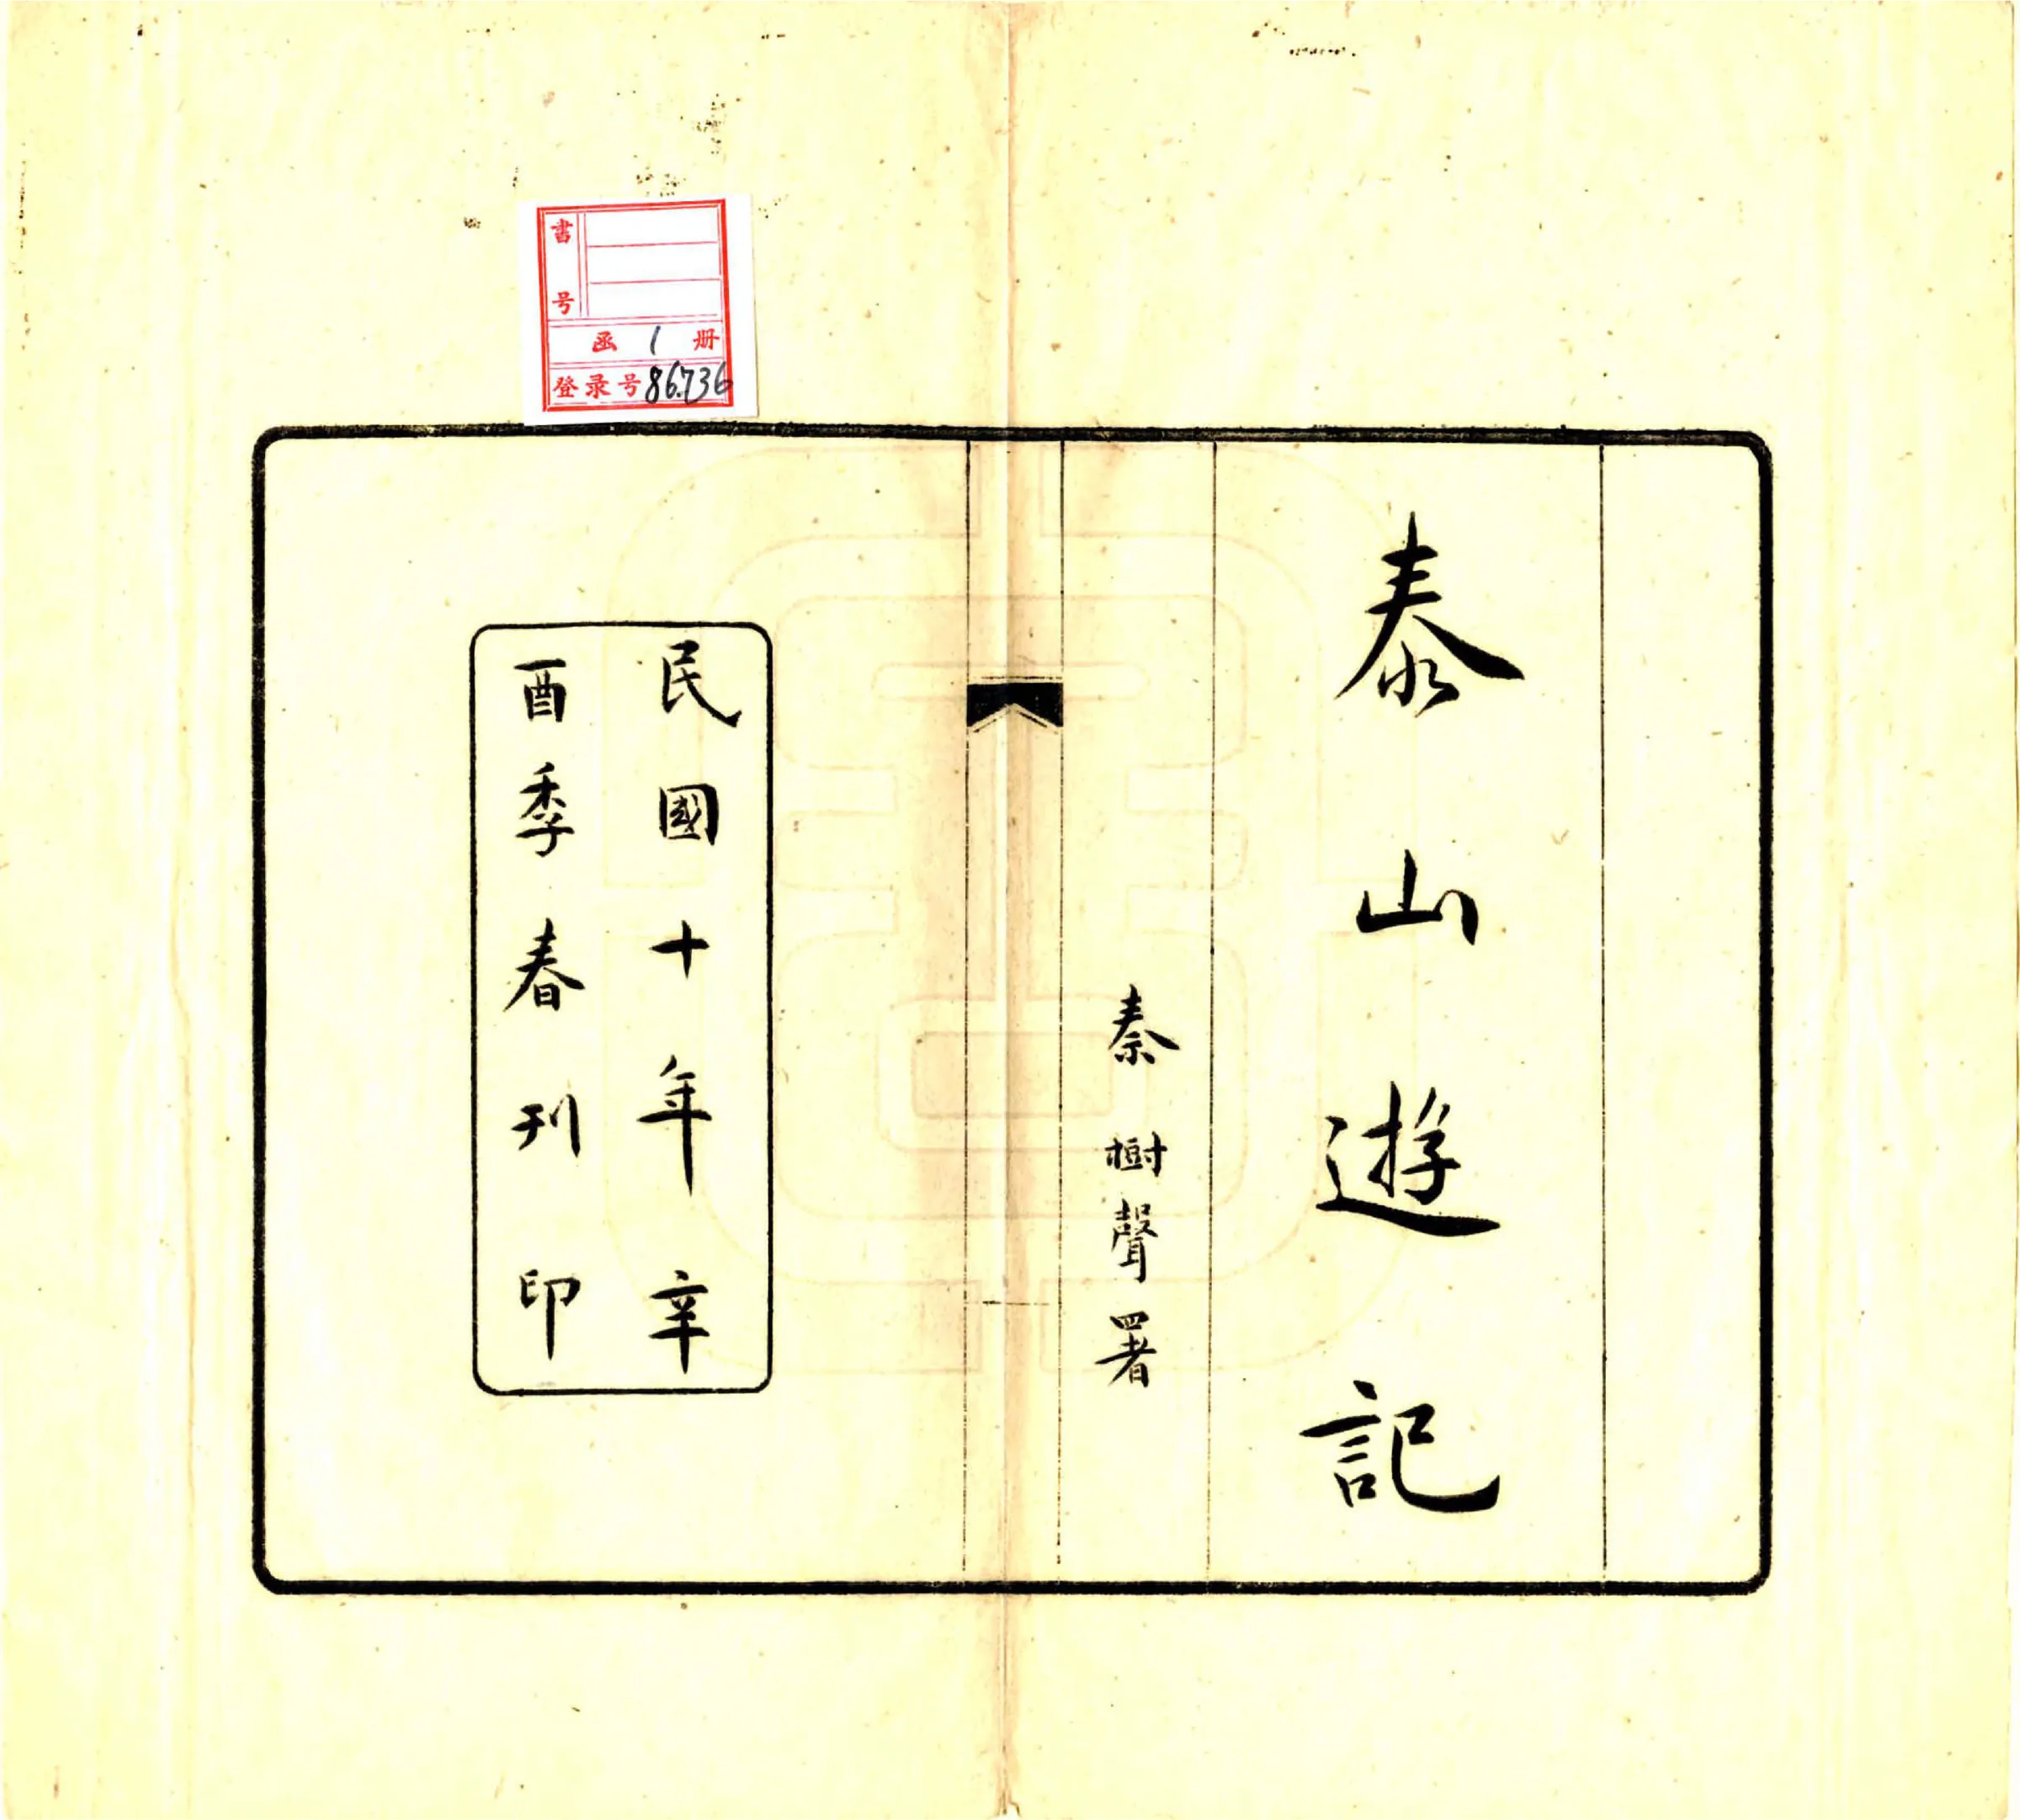 泰山遊記
秦樹聲署
民國十年辛
酉季春刊印
書号
函 1 册
登录号86736